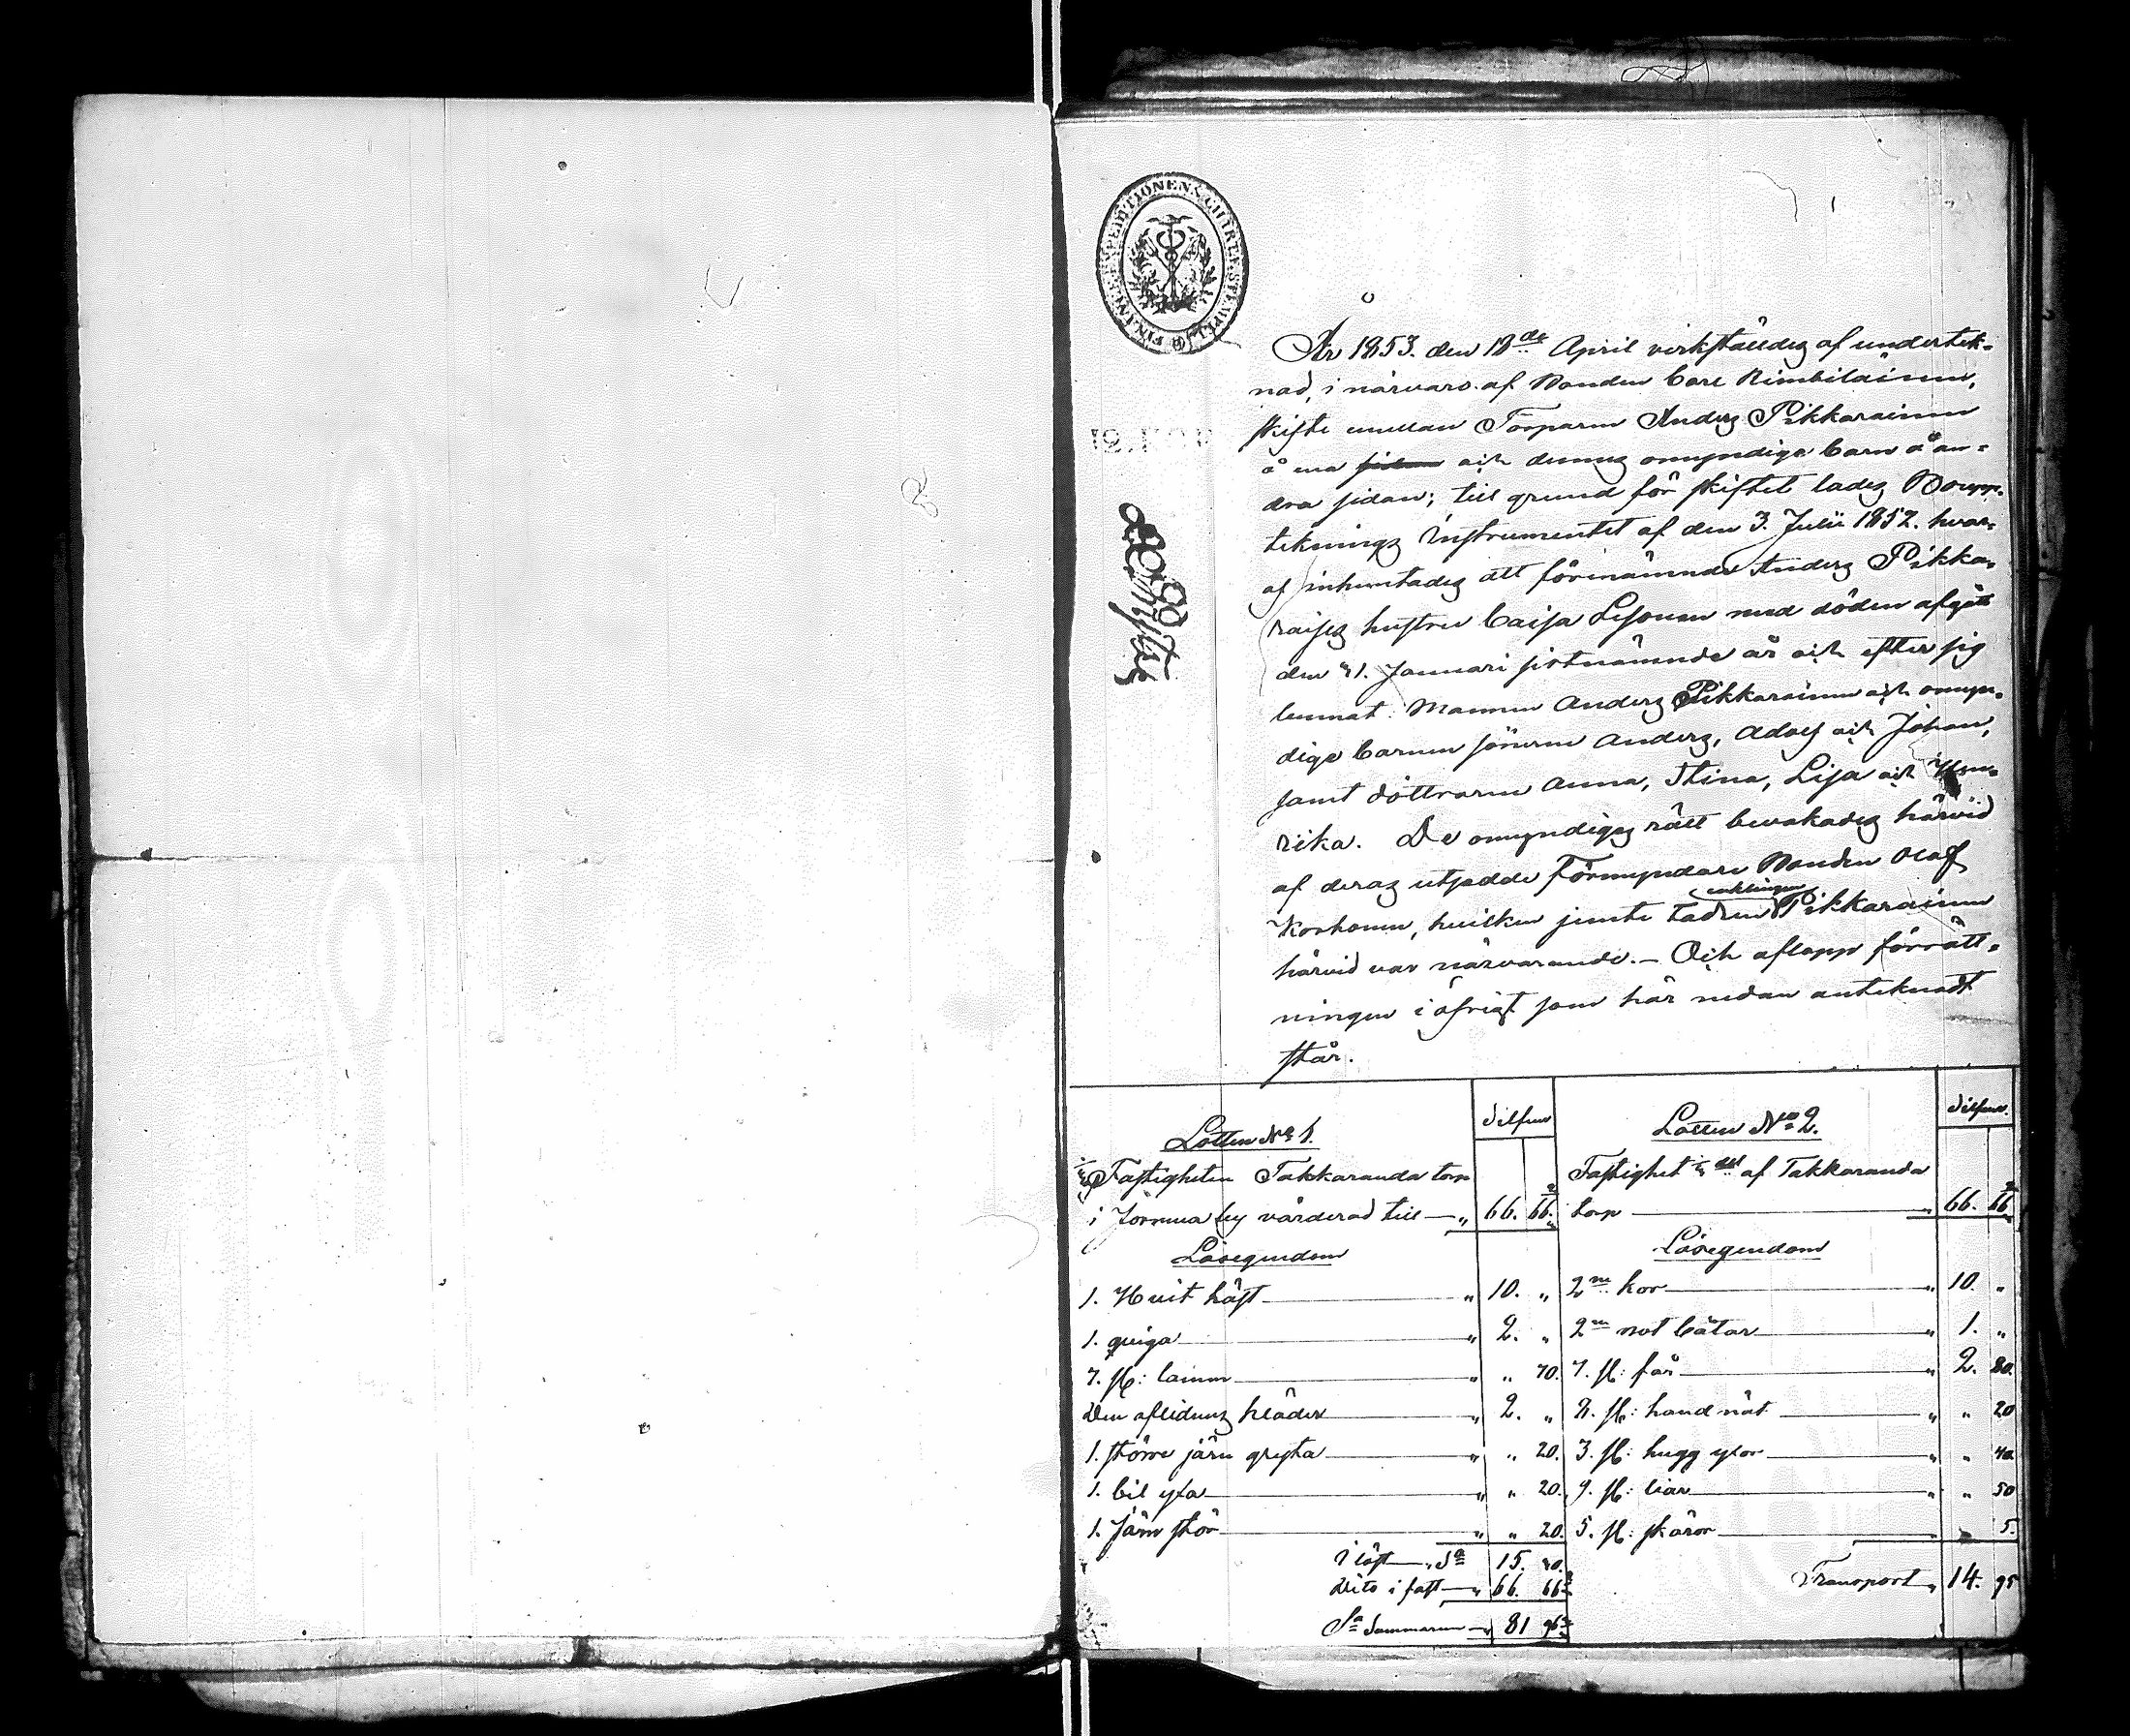 FINANCE EXPEDITIONENS CHARTÆ STEMPEL
År 1853. den 18de April verkställdes af undertek-
nad, i närvaro af Bonden Carl Kimbiläinen,
skifte emellan Torparen Anders Pikkarainen
å ena sidan och dennes omyndiga barn å an-
dra sidan; till grund för skiftet lades Boupp-
teknings Instrumentet af den 3. Julii 1852. hvar-
af inhemtades att förenämnde Anders Pikka-
rais hustru Caisa Lesonen med döden afgått
den 21. Januari sistnämnde år och efter sig
lemnat: Mannen Anders Pikkarainen och omyn-
dige barnen sönerne Anders, Adolf och Johan,
samt döttrarne Anna, Stina, Lisa och Hen-
rika. De omyndigas rätt bevakades härvid
af deras utsedde Förmyndare Bonden Olof
enklingen
Korhonen, hvilken jemte Fadren Pikkarainen
härvid var närvarande. – Och aflopp förrätt-
ningen i öfrigt som här nedan anteknadt
står.
Lotten No 1. Silfver
Fastigheten Takkaranda torp
i Jormua by värderad till — „ 66. 66 2/3
Lösegendom
1. Hvit häst — „ 10. „
1. qviga — „ 2. „
7. st: lamm — „ „ 70.
Den aflidnes kläder — „ 2. „
1. större järn gryta — „ „ 20.
1. bil yxa — „ „ 20.
1. Järn stör — „ „ 20.
i löst — Sa 15. 30.
Dito i fast — „ 66. 66 2/3
Sa Summarum — „ 81 96 2/3
Lotten No 2. Silfver.
Fastighet del af Takkaranda
torp — „ 66. 66 2/3
Lösegendom
2ne kor — „ 10. „
2ne not båtar — „ 1. „
7. st: får — „ 2. 80.
2. st: hand nät — „ „ 20
3. st: hugg yxor — „ „ 40
9. st: liar — „ „ 50
5. st: skäror — „ „ 5.
Transport „ 14. 95